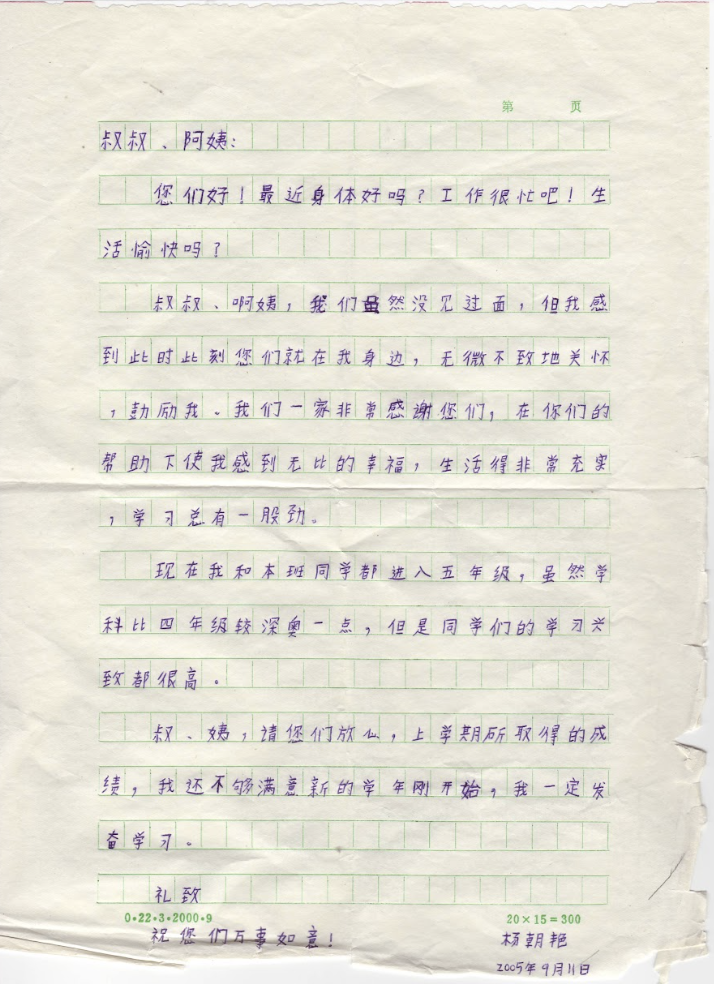 第 页
叔叔、阿姨：
您们好！最近身体好吗？工作很忙吧！生
活愉快吗？
叔叔、啊姨，我们虽然没见过面，但我感
到此时此刻您们就在我身边，无微不致地关怀
，鼓励我。我们一家非常感谢您们，在你们的
帮助下使我感到无比的幸福，生活得非常充实
，学习总有一股劲。
现在我和本班同学都进入五年级，虽然学
科比四年级较深奥一点，但是同学们的学习兴
致都很高。
叔、姨，请您们放心，上学期所取得的成
绩，我还不够满意新的学年刚开始，我一定发
奋学习。
礼致
0·22·3·2000·9
20×15=300
祝您们万事如意！
杨朝艳
2005年9月11日